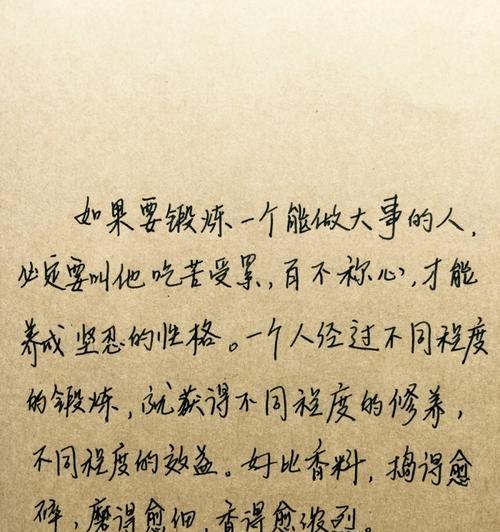 如果要锻炼一个能做大事的人，
必定要叫他吃苦受累，百不称心，才能
养成坚忍的性格。一个人经过不同程度
的锻炼，就获得不同程度的修养，
不同程度的效益。好比香料，捣得愈
碎，磨得愈细，香得愈浓烈。